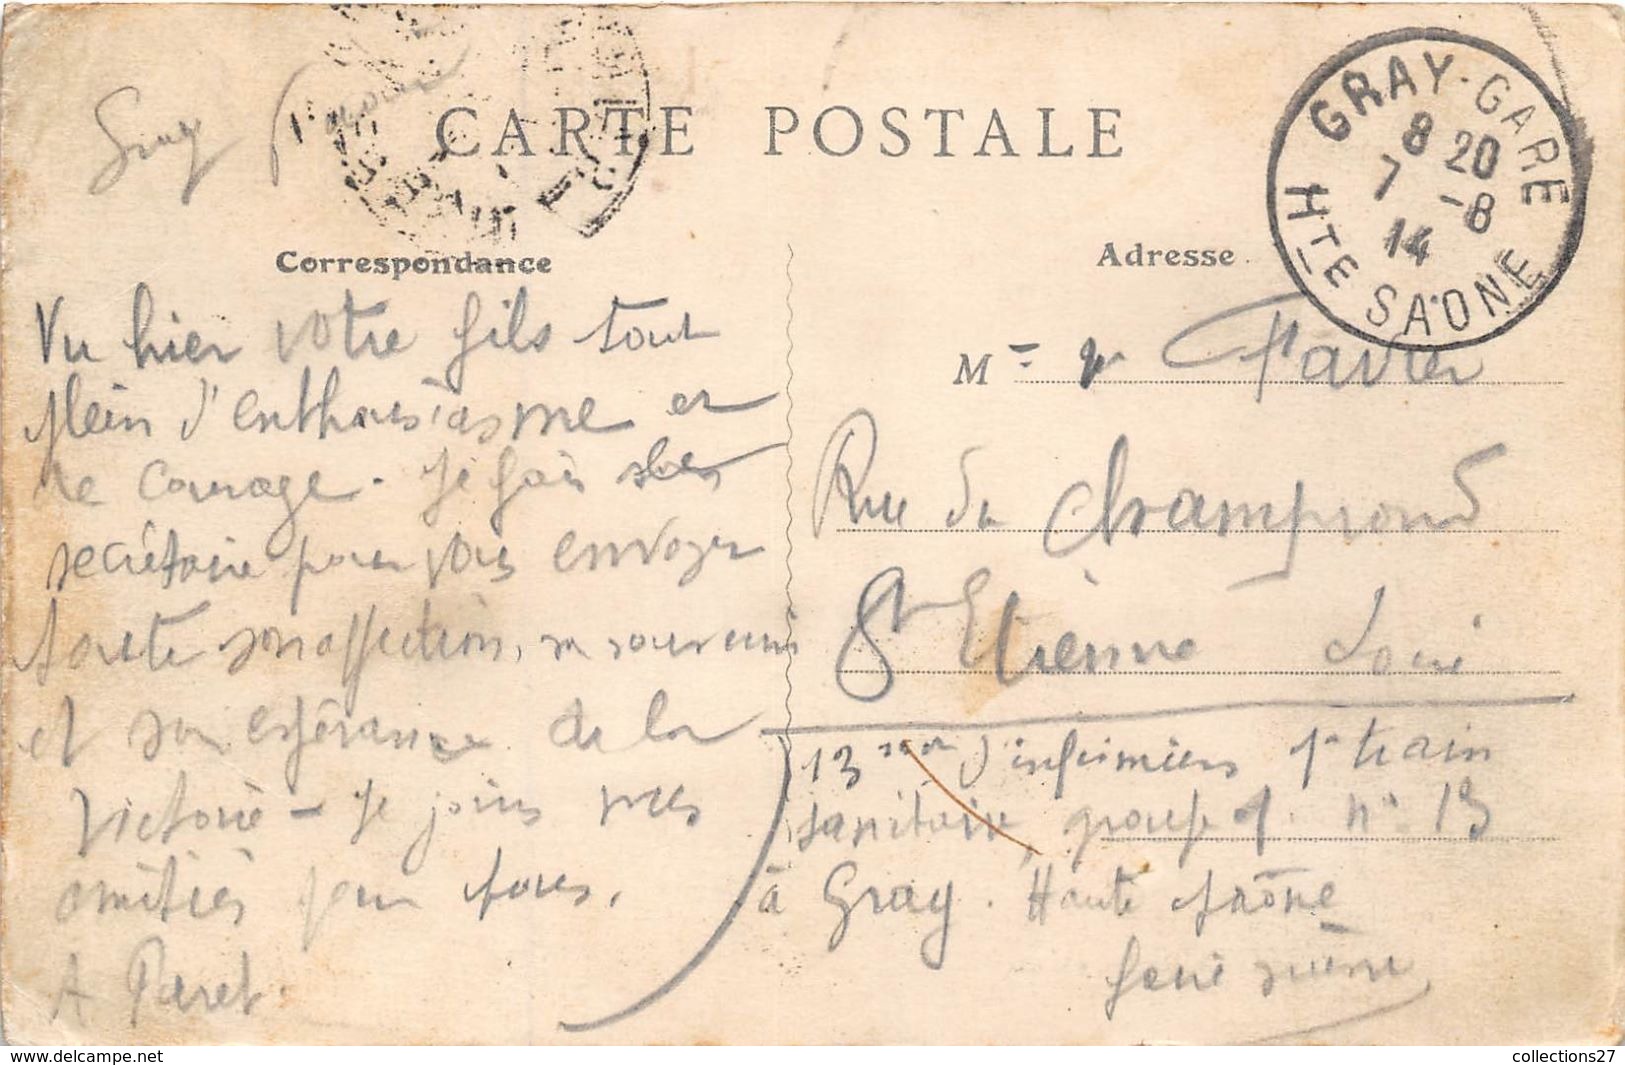 Gray
CARTE POSTALE
GRAY-GARE
8 20
7 -8
14
Hte SAÔNE
Correspondance
Vu hier votre fils tout
plein d'enthousiasme et
de courage. Je fais
secrétaire pour vous envoyer
toute son affection, son souvenir
et son espérance de la
Victoire - Je joins mes
amitiés pour tous.
A Paret.
Adresse
M Favier
Rue du Champrond
St Etienne Loire
13 d'infirmiers 1r train
sanitaire, groupe 1. n° 13
à Gray. Haute Saône
faire suivre
www.delcampe.net
collections27